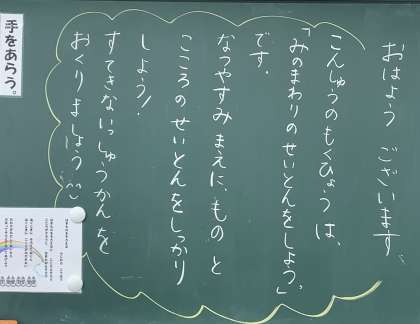 おはよう ございます
こんしゅうのもくひょうは、
「みのまわりのせいとんをしよう。」
です。
なつやすみまえに、ものと
こころのせいとんをしっかり
しよう!
すてきないっしゅうかんを
おくりましょう^^
手をあらう。